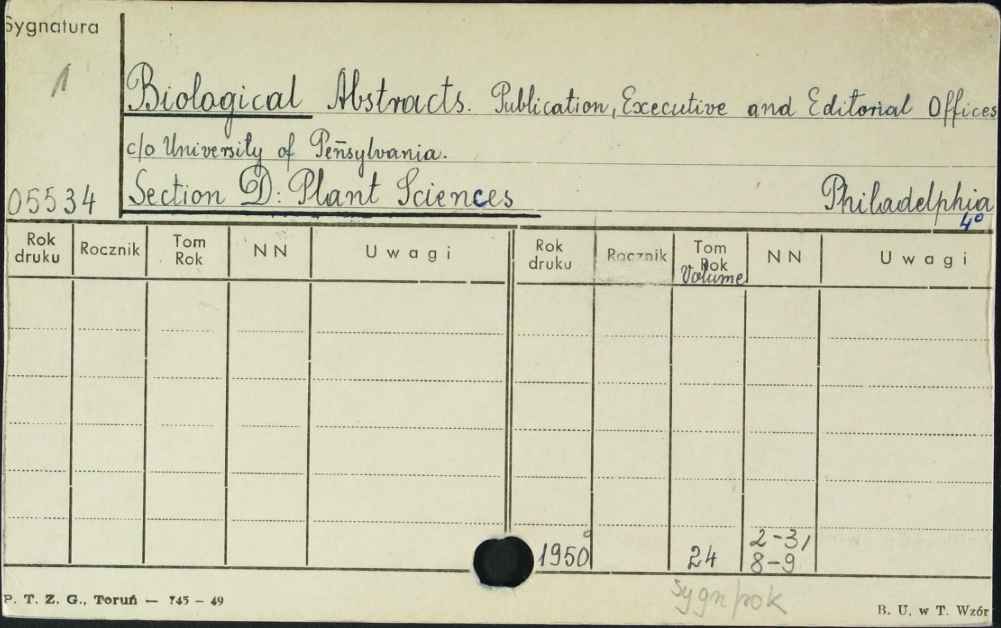 Sygnatura
1
Biological Abstracts. Publication, Executive and Editorial Offices
c/o University of Peñsylvania.
05534 Section D: Plant Sciences Philadelphia
4°
Rok druku Rocznik Tom Rok NN Uwagi Rok druku Rocznik Tom Rok Volume NN Uwagi
1950 24 2-3,
8-9
sygn rok
P. T. Z. G., Toruń — 745 – 49 B. U. w T. Wzór